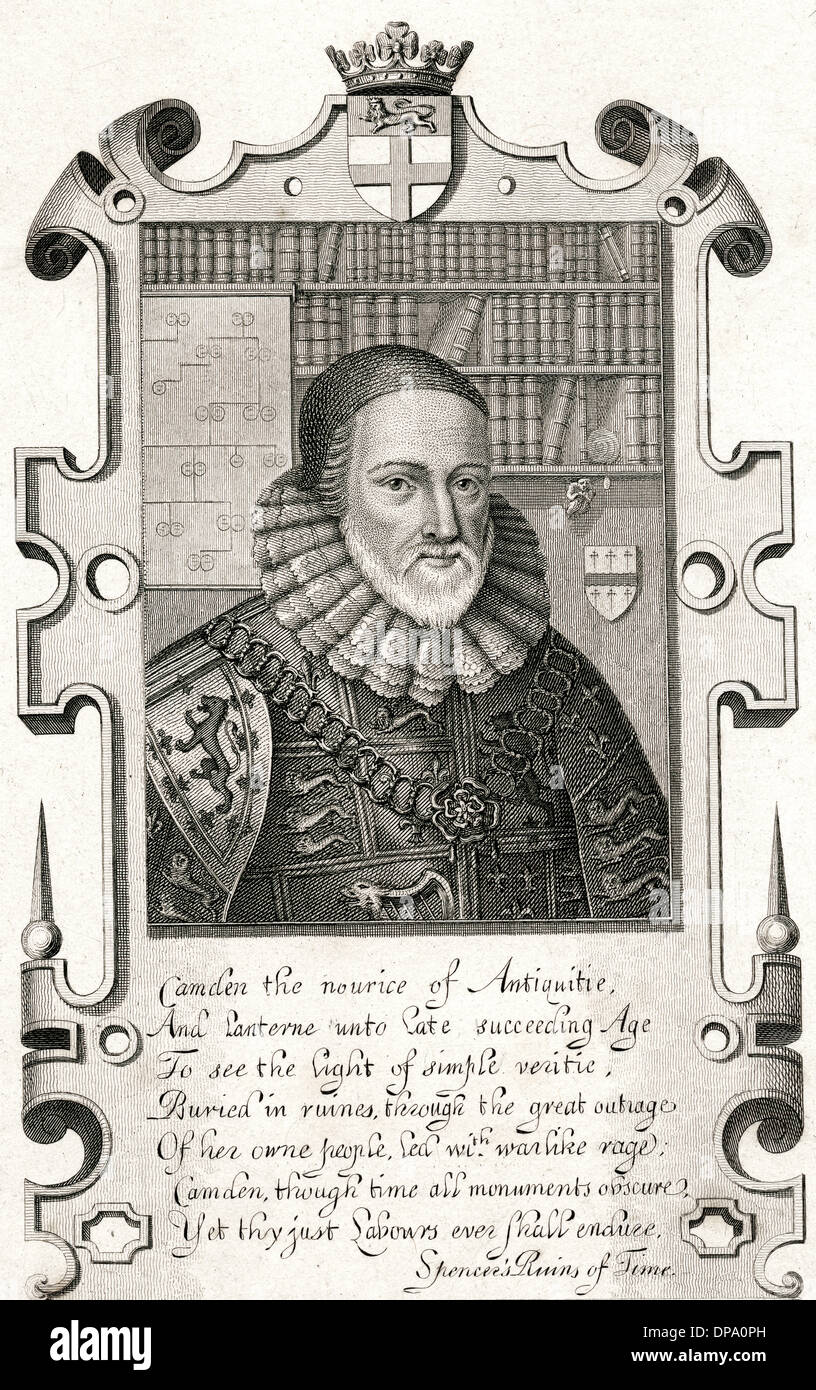 Camden the nourice of Antiquitie,
And Lanterne unto Late succeeding Age
To see the light of simple veritie,
Buried in ruines, through the great outrage
Of her owne people, led wth. warlike rage;
Camden, though time all monuments obscure,
Yet thy just Labours ever shall endure.
Spencer's Ruins of Time.
alamy
alamy stock photo
DPA0PH
www.alamy.com